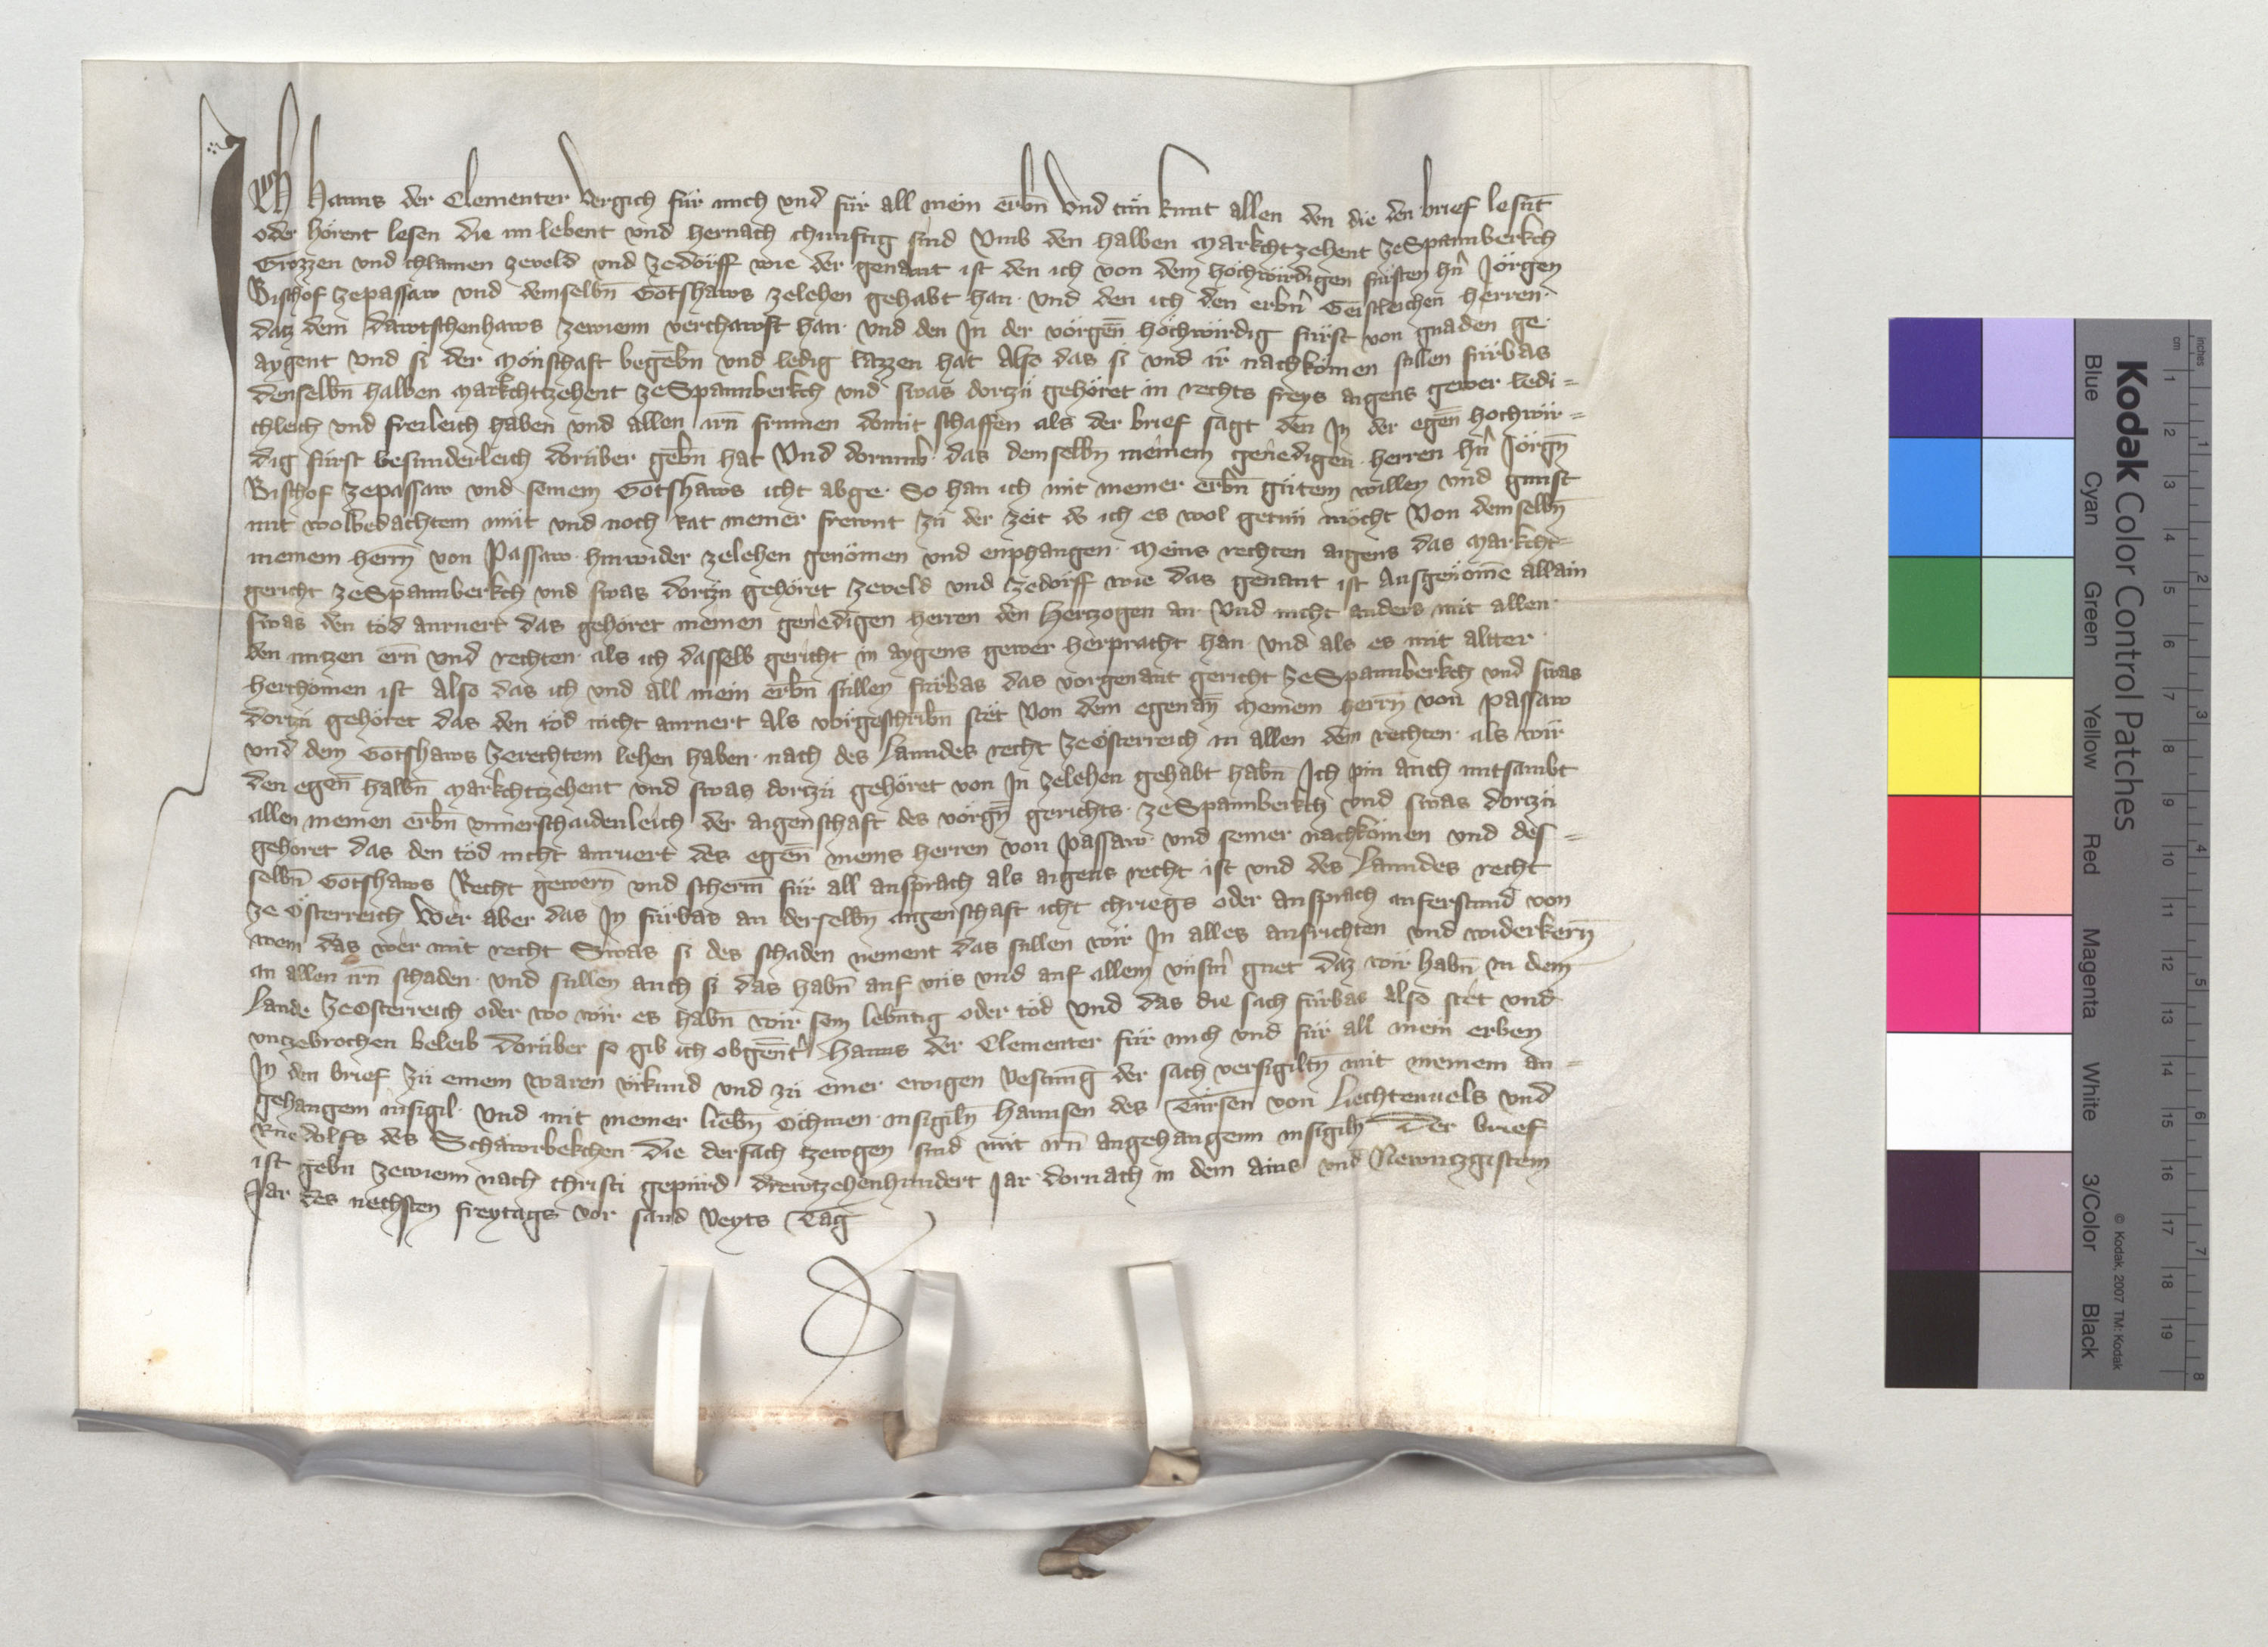 Ich Hanns der Clementer Vergich für mich vnd für all mein erbn̄ Vnd tün kunt allen den die den brief lesnt̄
oder hörent lesen die nu lebent vnd hernach chunftig sind Vmb den halben Markchtzehent zeSpannberkch
Grozzen vnd chlainen zeueld vnd zedörff wie der genant ist den ich von dem höchwirdigen fürsten hn̄ Jörgen
Bischof zepassaw vnd demselbn̄ Gotshaws zelehen gehabt han. vnd den ich den erbn̄ Geistleichen herren.
daz dem dawtschenhaws zewienn verchawft han. vnd den In der vorgen̄ höchwirdig fürst von gnaden ge
aygent vnd si der Mönschaft begebn̄ vnd ledig lazzen hat Also das si vnd ir nachkömen sullen fürbas
denselbn̄ halben Markchtzehent zeSpannberkch vnd swas dorzü gehöret in rechts freys aigens gewer ledi=
chleich vnd freileich haben vnd allen irn̄ frumen domit schaffen als der brief sagt den In der egen̄ hochwir=
dig fürst besunderleich dorüber gebn̄ hat Vnd dorumb. das demselbn̄ meinem genedigen. herren hn̄ Jörgn̄
Bischof zepassaw vnd seinem Gotshaws icht abge. So han ich mit meiner erbn̄ gütem willen vnd gunst
mit wolbedachtem müt vnd noch rat meiner frewnt zü der zeit do ich es wol getün möcht Von demselbn̄
meinem herrn̄ von Passaw. hinwider zelehen genömen vnd enphangen. Meins rechten aigens das Markcht=
gericht zeSpannberkch vnd swas dorzu gehöret zeueld vnd zedörff wie das genant ist Ausgenomē allain
swas den töd anruert das gehöret meinen genedigen herren den Hertzogen an. Vnd nicht anders mit allen.
den nutzen ern̄ vnd rechten. als ich dasselb gericht in aygens gewer herpracht han. vnd als es mit altter
herchömen ist Also das ich vnd all mein erbn̄ sullen fürbas das vorgenant gericht zeSpannberkch vnd swas
dorzü gehöret das den töd nicht anruert als vorgeschribn̄ stet Von dem egenan̄ Meinem herrn̄ von passaw
vnd dem Gotshaws zerechtem lehen haben. nach des Lanndes recht zeOsterreich in allen dem rechten. als wir
den egen̄ halbn̄ Markchtzehent vnd swas dortzü gehöret von In zelehen gehabt habn̄ Ich pin auch mitsambt
allen meinen erbn̄ vnuerschaidenleich der aigenschaft des vörgn̄ gerichts. zeSpannberkch vnd swas dorzü
gehoret das den töd nicht anruert des egen̄ meins herren von passaw. vnd seiner nachkömen vnd des=
selbn̄ Gotshaws Recht gewern̄ vnd scherm̄ für all ansprach als aigens recht ist vnd des Lanndes recht
ze Österreich Wer aber das In fürbas an derselbn̄ aigenschaft icht chriegs oder ansprach auferstund von
wem das wer mit recht Swas si des schaden nement das sullen wir In alles ausrichten vnd widerkern̄
an allen irn̄ schaden. vnd sullen auch si das habn̄ auf vns vnd auf allem vnsm̄ guet daz wir habn̄ in dem
Lande zeOsterreich oder wo wir es habn̄ wir sein lebntig oder töd Vnd das die sach fürbas also stet vnd
vnczebrochen beleib Dorüber so gib ich obgen̄tr̄ Hanns der Clementer für mich vnd für all mein erben
In den brief zü einem waren vrkund vnd zü einer ewigen Vestung der sach versigiltn̄ mit meinem an=
gehangem insigil. Vnd mit meiner liebn̄ Öchmen. insigiln̄ Hannsen des Türsen von Liechtenuels vnd
Ruedolfs des Schawrbekchen. die dersach tzewgen sind mit irn̄ angehangenn insigiln̄ Der brief
ist gebn̄ zewienn nach christi gepürd drewtzehenhundert Jar dornach in dem ains vnd Newntzgistem
Jar des nechsten freytags vor sand Veyts Tag
Kodak Color Control Patches
Blue Cyan Green Yellow Red Magenta White 3/Color Black
© Kodak, 2007 TM: Kodak
cm 1 2 3 4 5 6 7 8 9 10 11 12 13 14 15 16 17 18 19
inches 1 2 3 4 5 6 7 8